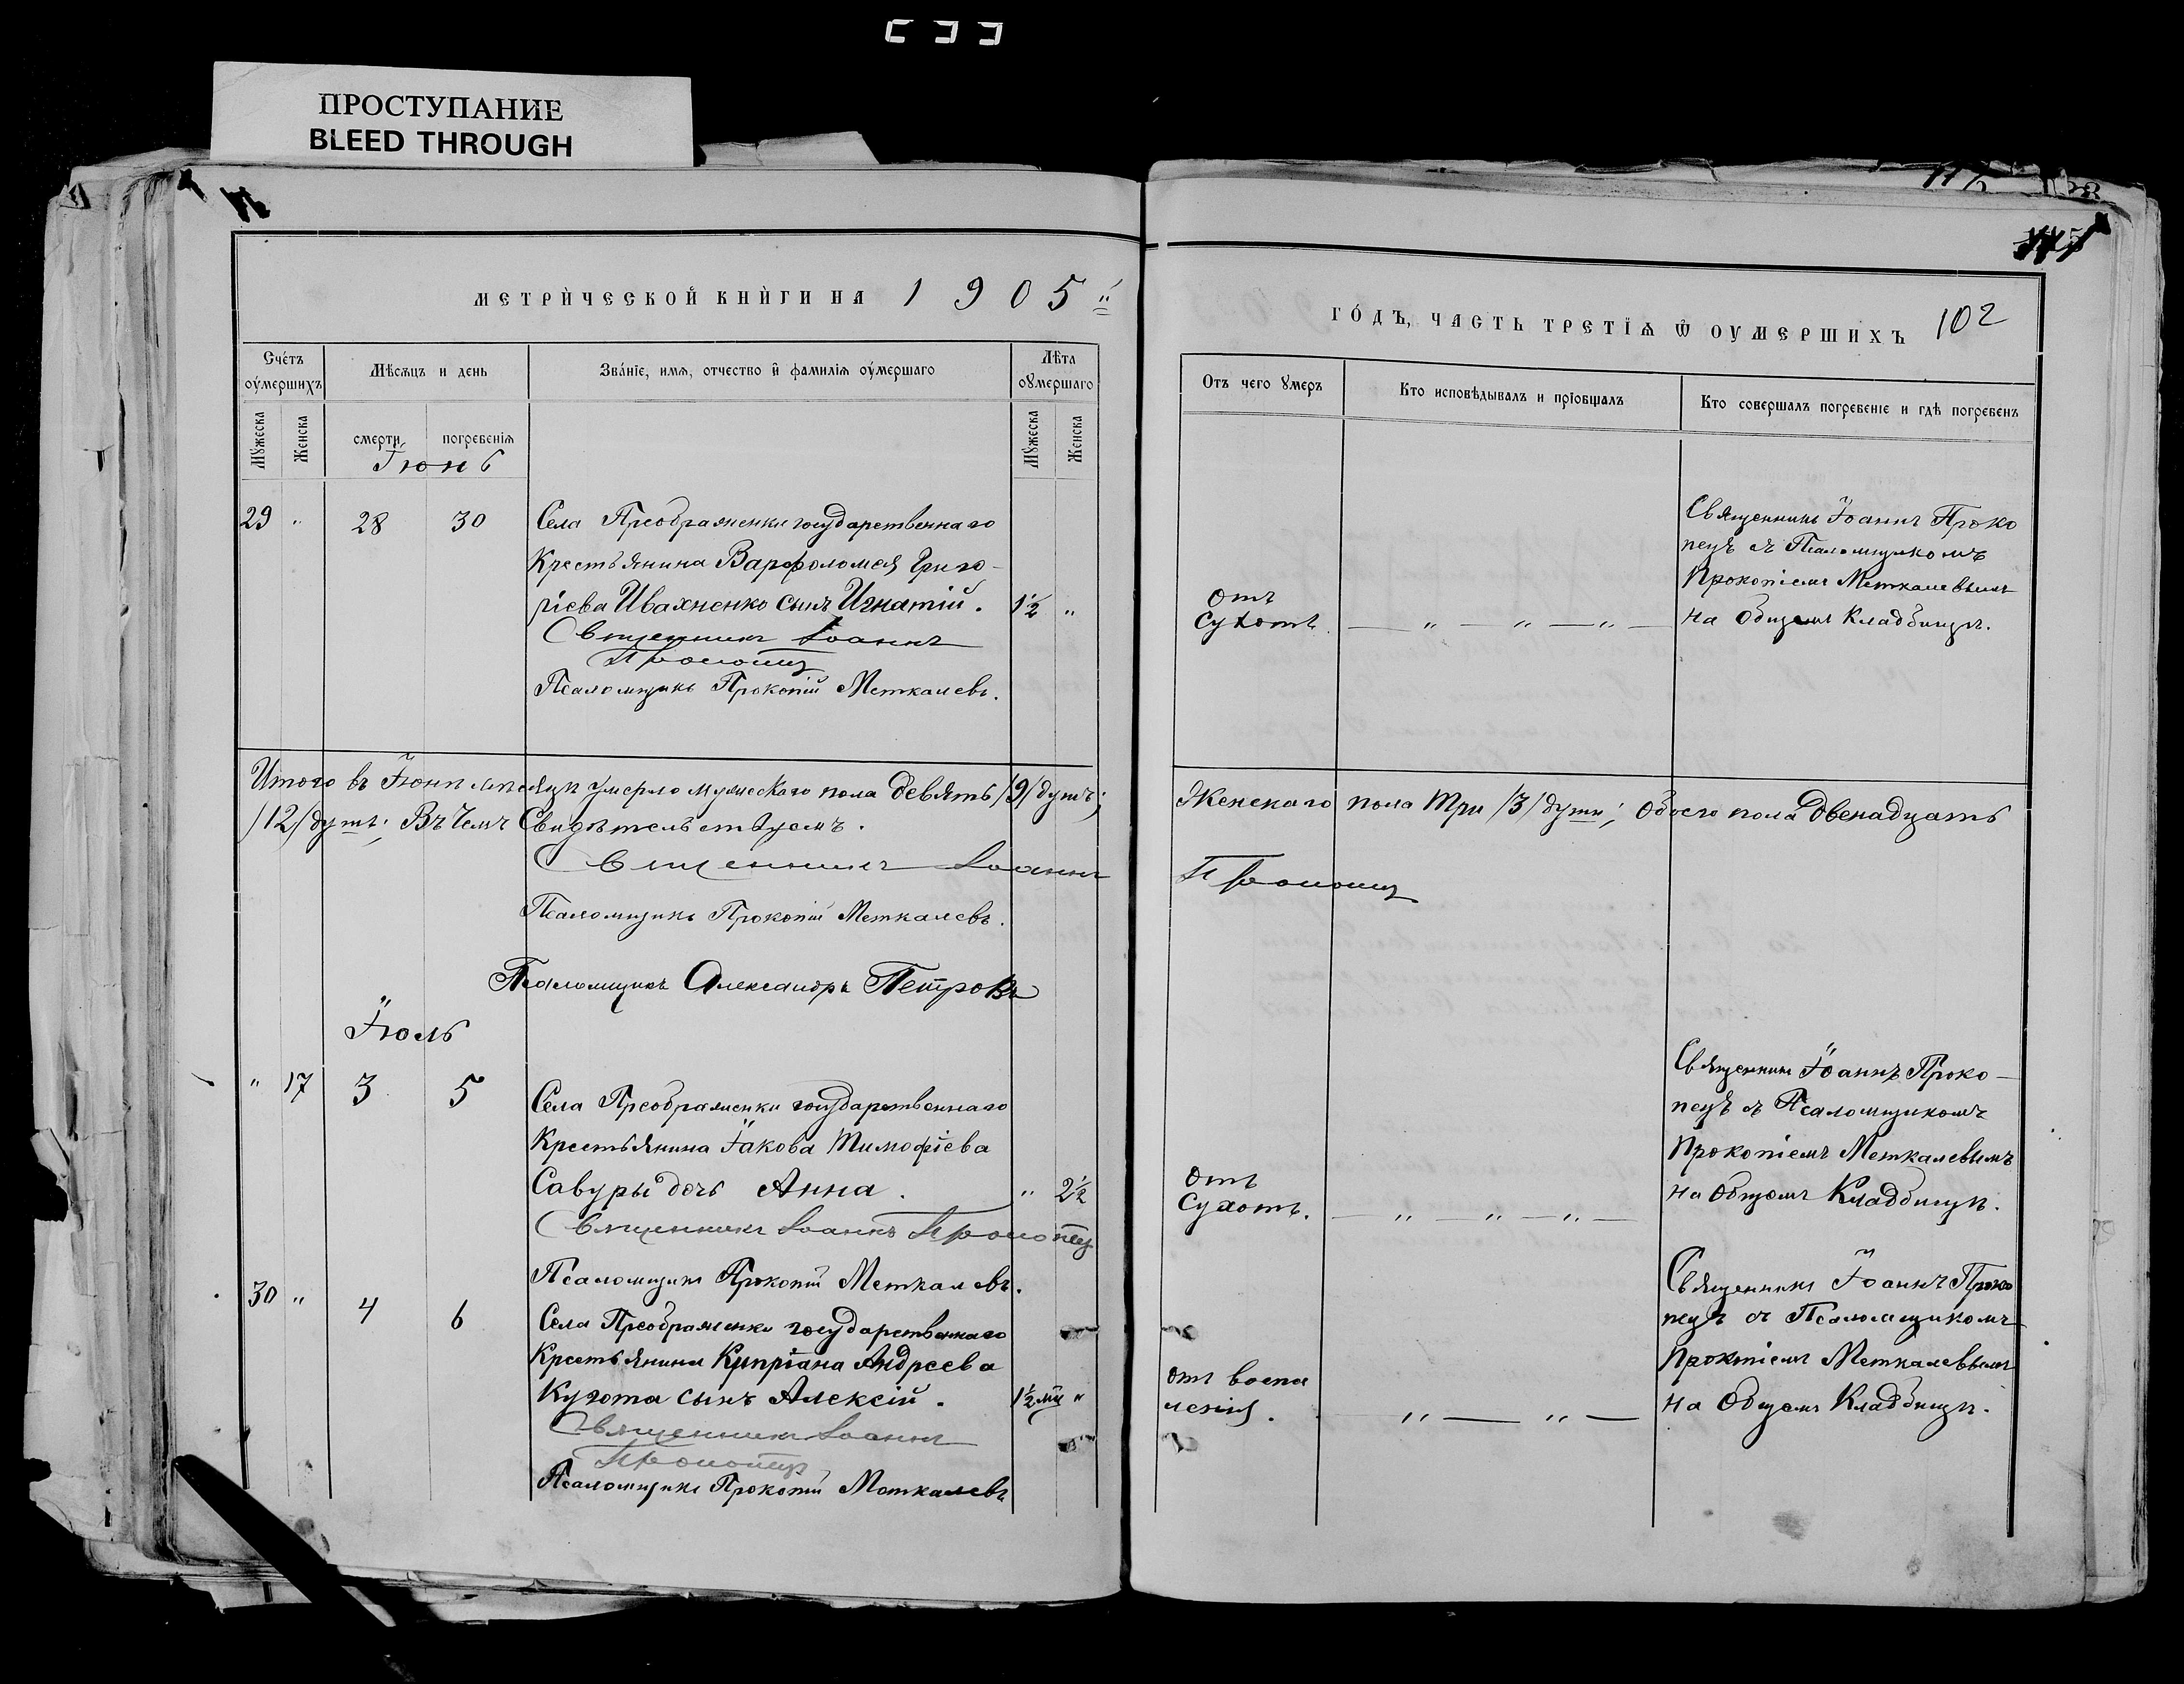 ПРОСТУПАНИЕ
BLEED THROUGH
МЕТРИЧЕСКОЙ КНИГИ НА 1905й
Счетъ оумершихъ
Мѣсяцъ и день
Званіе, имя, отчество и фамилія оумершаго
Лѣта оумершаго
Мужеска
Женска
смерти
погребенія
Мужеска
Женска
Іюнь
29 " 28 30
Села Преображенки государственнаго
крестьянина Варфоломея Григо-
ріева Ивахненко сынъ Игнатій. 1½ "
Священникъ Іоаннъ
Прокопецъ
Псаломщикъ Прокопій Меткалевъ.
Итого въ Іюнѣ мѣсяцѣ умерло мужескаго пола девять /9/ душъ;
/12/ душъ; Въ чемъ Свидѣтельствуемъ.
Священникъ Іоаннъ
Псаломщикъ Прокопій Меткалевъ.
Псаломщикъ Александръ Петровъ
Іюль
" 17 3 5
Села Преображенки государственнаго
крестьянина Іакова Тимофіева
Савуры дочь Анна. " 2½
Священникъ Іоаннъ Прокопецъ
Псаломщикъ Прокопій Меткалевъ.
30 " 4 6
Села Преображенки государственнаго
крестьянина Кипріана Андреева
Кугота сынъ Алексій. 1½ мц "
Священникъ Іоаннъ
Прокопецъ
Псаломщикъ Прокопій Меткалевъ
ГОДЪ, ЧАСТЬ ТРЕТІЯ Ѿ ОУМЕРШИХЪ 102
Отъ чего умеръ
Кто исповѣдывалъ и пріобщалъ
Кто совершалъ погребеніе и гдѣ погребенъ
Священникъ Іоаннъ Проко
пецъ съ Псаломщикомъ
Прокопіемъ Меткалевымъ
на общемъ кладбищѣ.
Отъ
Сухотъ. — " — " — " —
Женскаго пола три /3/ души; обоего пола двенадцать
Прокопецъ
Священникъ Іоаннъ Проко-
пецъ съ Псаломщикомъ
Прокопіемъ Меткалевымъ
на общемъ кладбищѣ.
Отъ
Сухотъ. — " — " — " —
Священникъ Іоаннъ Проко
пецъ съ Псаломщикомъ
Прокопіемъ Меткалевымъ
на общемъ кладбищѣ.
Отъ воспа
ленія. " — " —